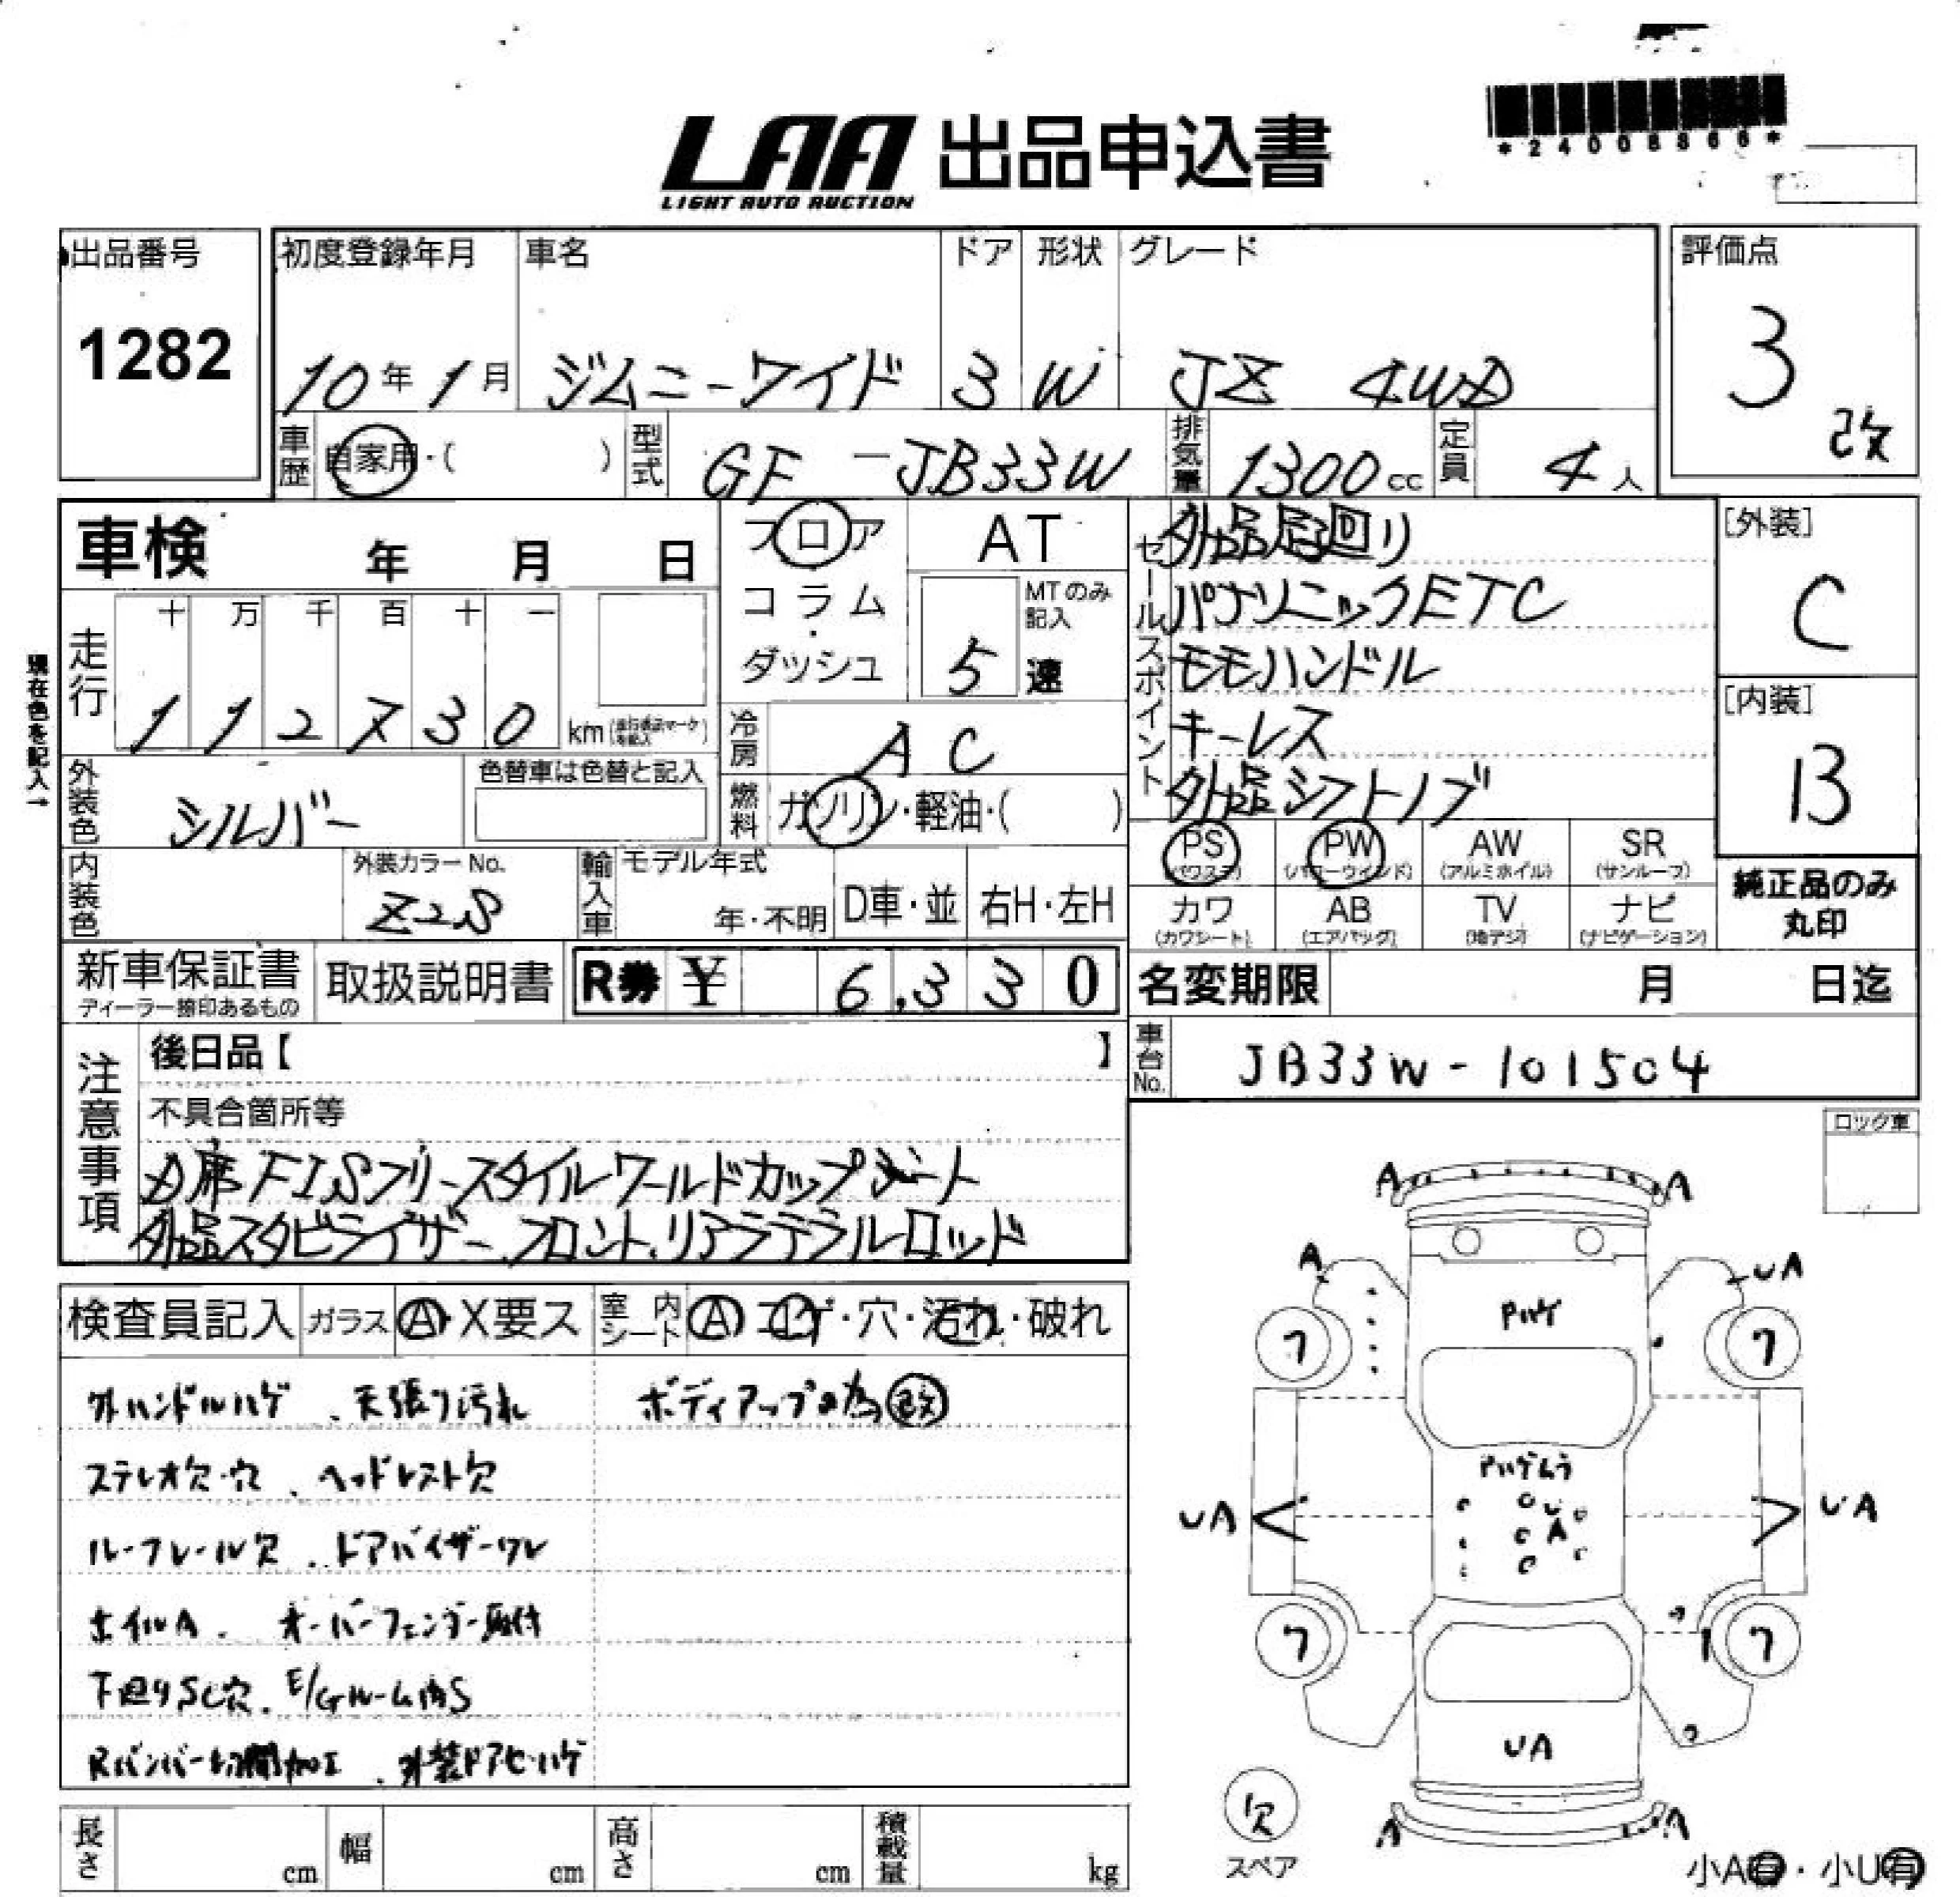 *24008866*
LAA 出品申込書
LIGHT AUTO AUCTION
出品番号
1282
初度登録年月 車名 ドア 形状 グレード
10年1月 ジムニーワイド 3 W JZ 4WD
評価点
3
改
車歴 自家用・( ) 型式 GF-JB33W 排気量 1300cc 定員 4人
車検 年 月 日
フロア
コラム
・
ダッシュ
AT
MTのみ記入
5 速
セールスポイント
外品足回り
パナソニックETC
モモハンドル
キーレス
外品シフトノブ
[外装]
C
[内装]
B
現在色を記入→
走行
十 万 千 百 十 一
1 1 2 7 3 0 km
冷房 AC
燃料 ガソリン・軽油・( )
外装色 シルバー
色替車は色替と記入
内装色
外装カラーNo.
Z2S
輸入車 モデル年式
年・不明 D車・並 右H・左H
PS PW AW SR
(パワステ) (パワーウインド) (アルミホイル) (サンルーフ)
カワ AB TV ナビ
(カワシート) (エアバッグ) (地デジ) (ナビゲーション)
純正品のみ
丸印
新車保証書
ディーラー捺印あるもの
取扱説明書
R券 ¥ 6,330
名変期限 月 日迄
車台No. JB33W-101504
注意事項
後日品【 】
不具合箇所等
席FISフリースタイルワールドカップシート
外品スタビライザー、フロント、リアラテラルロッド
ロック車
検査員記入 ガラス A・X要ス 室内シート A コゲ・穴・汚れ・破れ
外ハンドルハゲ、天張り汚れ
ボディアップの為改
ステレオ欠・穴、ヘッドレスト欠
ルーフレール欠、ドアバイザーワレ
ホイルA、オーバーフェンダー取付
下廻りSC穴、E/Gルーム内S
Rバンパー切開加工、外装ドアモールハゲ
A A
A UA
Pハゲ
ワ ワ
Pハゲムラ
UA UA
U
A
ワ ワ
UA
欠
スペア
A A
小A有・小U有
長さ cm 幅 cm 高さ cm 積載量 kg